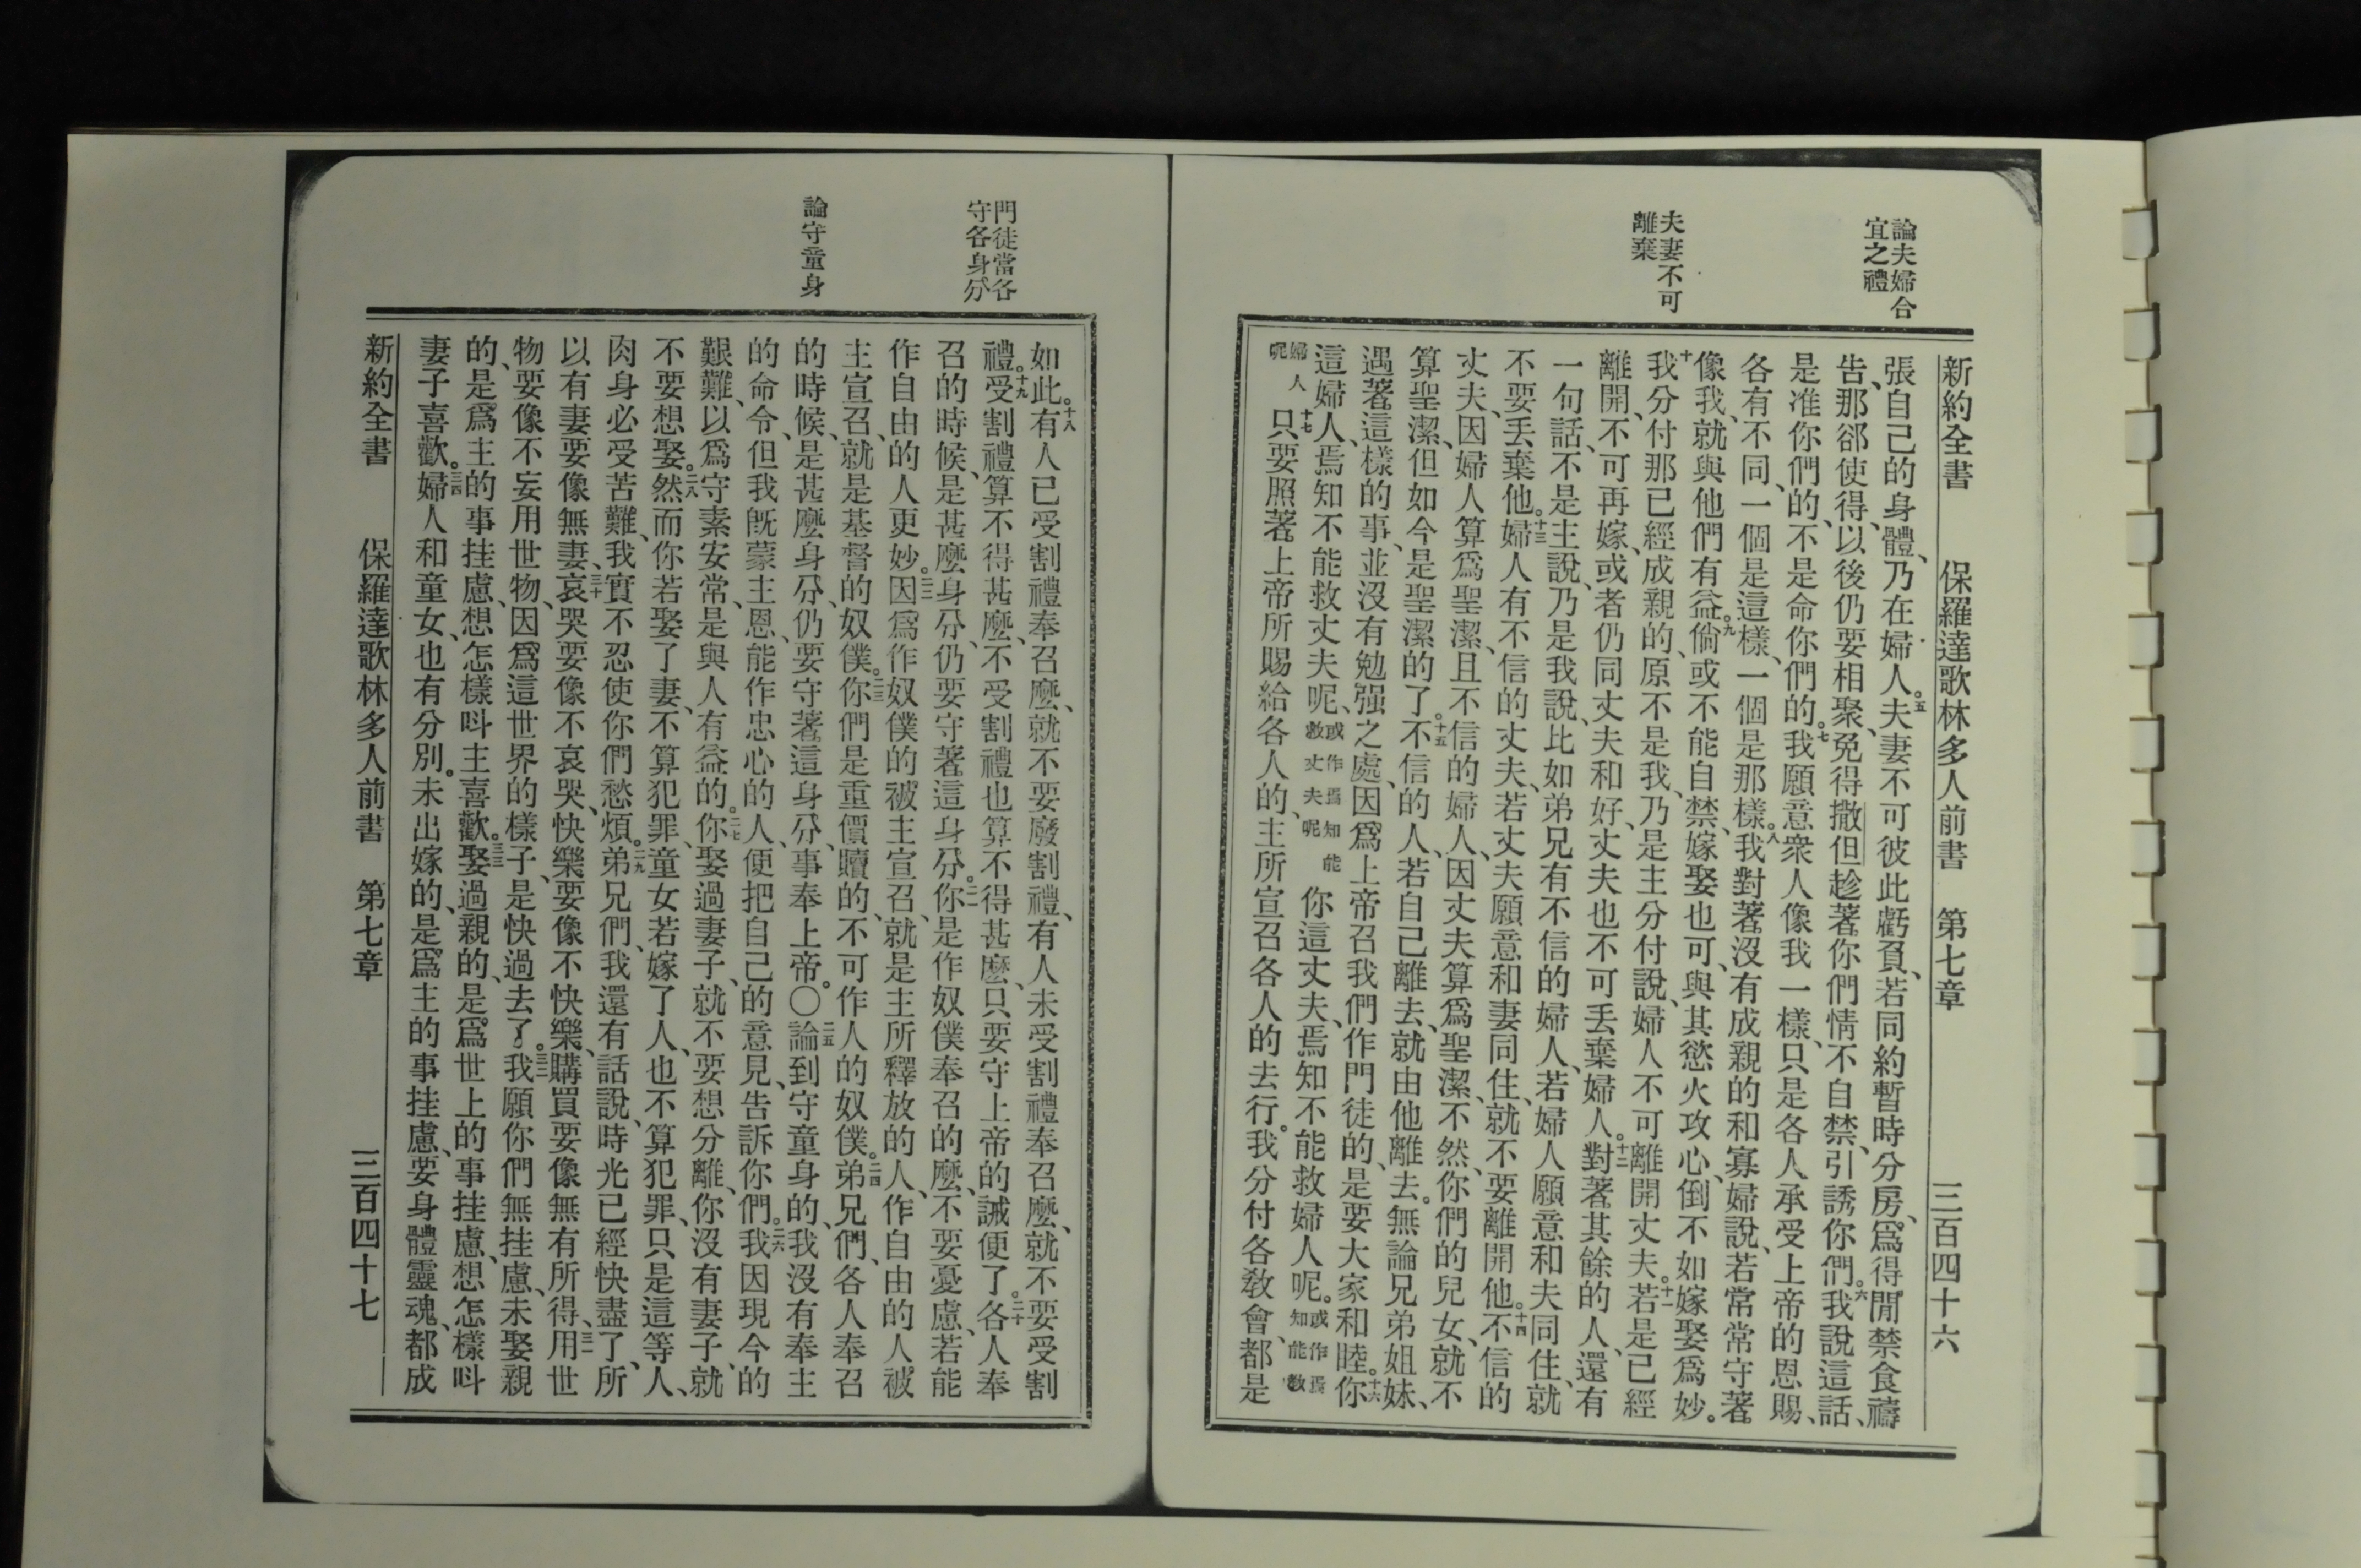 論夫婦合
宜之禮
夫妻不可
離棄
新約全書 保羅達歌林多人前書 第七章 三百四十六
張自己的身體、乃在婦人。五夫妻不可彼此虧負、若同約暫時分房、爲得閒禁食禱
告、那郤使得、以後仍要相聚、免得撒但趁著你們情不自禁、引誘你們。六我說這話、
是准你們的、不是命你們的。七我願意衆人像我一樣、只是各人承受上帝的恩賜、
各有不同、一個是這樣、一個是那樣。八我對著沒有成親的和寡婦說、若常常守著
像我、就與他們有益。九倘或不能自禁、嫁娶也可、與其慾火攻心、倒不如嫁娶爲妙。
十我分付那已經成親的、原不是我、乃是主分付說、婦人不可離開丈夫。十一若是已經
離開、不可再嫁、或者仍同丈夫和好、丈夫也不可丟棄婦人。十二對著其餘的人、還有
一句話、不是主說、乃是我說、比如弟兄有不信的婦人、若婦人願意和夫同住、就
不要丟棄他。十三婦人有不信的丈夫、若丈夫願意和妻同住、就不要離開他。十四不信的
丈夫、因婦人算爲聖潔、且不信的婦人、因丈夫算爲聖潔、不然、你們的兒女、就不
算聖潔、但如今是聖潔的了。十五不信的人、若自己離去、就由他離去。無論兄弟姐妹、
遇著這樣的事、並沒有勉强之處、因爲上帝召我們作門徒的、是要大家和睦。十六你
這婦人、焉知不能救丈夫呢、或作焉知能救丈夫呢 你這丈夫、焉知不能救婦人呢。或作焉知能救
婦人呢 十七只要照著上帝所賜給各人的、主所宣召各人的去行。我分付各敎會、都是
門徒當各
守各身分
論守童身
如此。十八有人已受割禮奉召麼、就不要廢割禮、有人未受割禮奉召麼、就不要受割
禮。十九受割禮算不得甚麼、不受割禮也算不得甚麼、只要守上帝的誡便了。二十各人奉
召的時候、是甚麼身分、仍要守著這身分。二一你是作奴僕奉召的麼、不要憂慮、若能
作自由的人更妙。二二因爲作奴僕的被主宣召、就是主所釋放的人、作自由的人被
主宣召、就是基督的奴僕。二三你們是重價贖的、不可作人的奴僕。二四弟兄們、各人奉召
的時候、是甚麼身分、仍要守著這身分、事奉上帝。〇二五論到守童身的、我沒有奉主
的命令、但我旣蒙主恩、能作忠心的人、便把自己的意見、告訴你們。二六我因現今的
艱難、以爲守素安常、是與人有益的。二七你娶過妻子、就不要想分離、你沒有妻子、就
不要想娶。二八然而你若娶了妻、不算犯罪、童女若嫁了人、也不算犯罪、只是這等人、
肉身必受苦難、我實不忍使你們愁煩。二九弟兄們、我還有話說、時光已經快盡了、所
以有妻要像無妻、三十哀哭要像不哀哭、快樂要像不快樂、購買要像無有所得、三一用世
物、要像不妄用世物、因爲這世界的樣子、是快過去了。三二我願你們無挂慮、未娶親
的、是爲主的事挂慮、想怎樣呌主喜歡。三三娶過親的、是爲世上的事挂慮、想怎樣呌
妻子喜歡。三四婦人和童女、也有分別。未出嫁的、是爲主的事挂慮、要身體靈魂、都成
新約全書 保羅達歌林多人前書 第七章 三百四十七